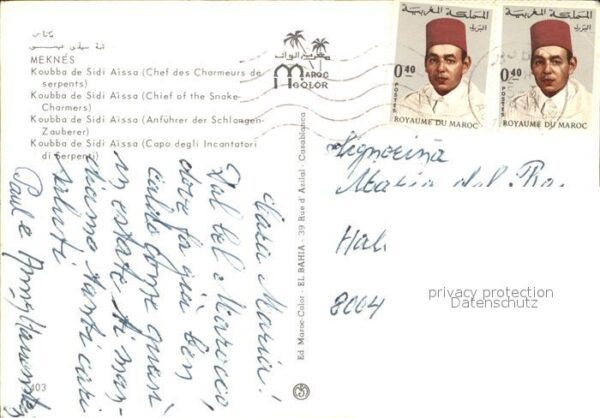 مكناس
MEKNÈS
Koubba de Sidi Aïssa (Chef des Charmeurs de
serpents)
Koubba de Sidi Aïssa (Chief of the Snake-
Charmers)
Koubba de Sidi Aïssa (Anführer der Schlangen-
Zauberer)
Koubba de Sidi Aïssa (Capo degli Incantatori
di serpenti)
MAROC
COLOR
المملكة المغربية
البريد
0,40
POSTES
ROYAUME DU MAROC
المملكة المغربية
البريد
0,40
POSTES
ROYAUME DU MAROC
Ed Maroc-Color - EL BAHIA - 39 Rue d'Azilal - Casablanca
Cara Maria!
Dal bel Marocco,
dove fa già ben
caldo come quasi
in estate, ti man-
diamo tanti cari
saluti
Paul e
Signorina
Maria del
8004
privacy protection
Datenschutz
403